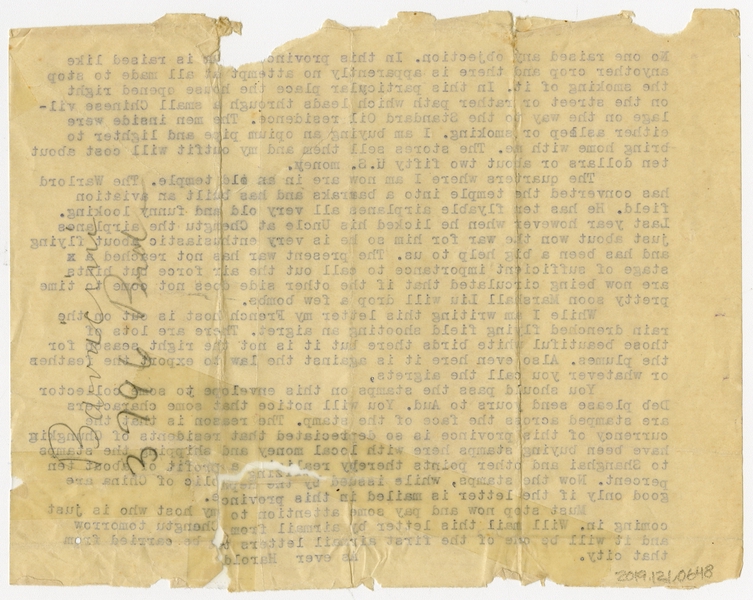 No one raised any objection. In this province is raised like
anyother crop and there is apparently no attempt at all made to stop
the smoking of it. In this particular place the house opened right
on the street or rather path which leads through a small Chinese vil-
lage on the way to the Standard Oil residence. The men inside were
either asleep or smoking. I am buying an opium pipe and lighter to
bring home with me. The stores sell them and my outfit will cost about
ten dollars or about two fifty U.S. money.
The quarters where I am now are in an old temple. The Warlord
has converted the temple into a barraks and has built an aviation
field. He has ten flyable airplanes all very old and funny looking.
Last year however when he licked his Uncle at Chengtu the airplanes
just about won the war for him so he is very enthusiastic about flying
and has been a big help to us. The present war has not reached a x
stage of sufficient importance to call out the air force but hints
are now being circulated that if the other side does not come to time
pretty soon Marshall Liu will drop a few bombs.
While I am writing this letter my French host is out on the
rain drenched flying field shooting an aigret. There are lots of
those beautiful white birds there but it is not the right season for
the plumes. Also even here it is against the law to export the feather
or whatever you call the aigrets,
You should pass the stamps on this envelope to some collector
Deb please send yours to Aud. You will notice that some characters
are stamped across the face of the stamp. The reason is that the
currency of this province is so depreciated that residents of Chungkig
have been buying stamps here with local money and shipping the stamps
to Shanghai and other points thereby realizing a profit of about ten
percent. Now the stamps, while issued by the Republic of China are
good only if the letter is mailed in this province.
Must stop now and pay some attention to my host who is just
coming in. Will mail this letter by airmail from Chengtu tomorrow
and it will be one of the first airmail letters to be carried from
that city. As ever Harold
3296
2019.121.0648